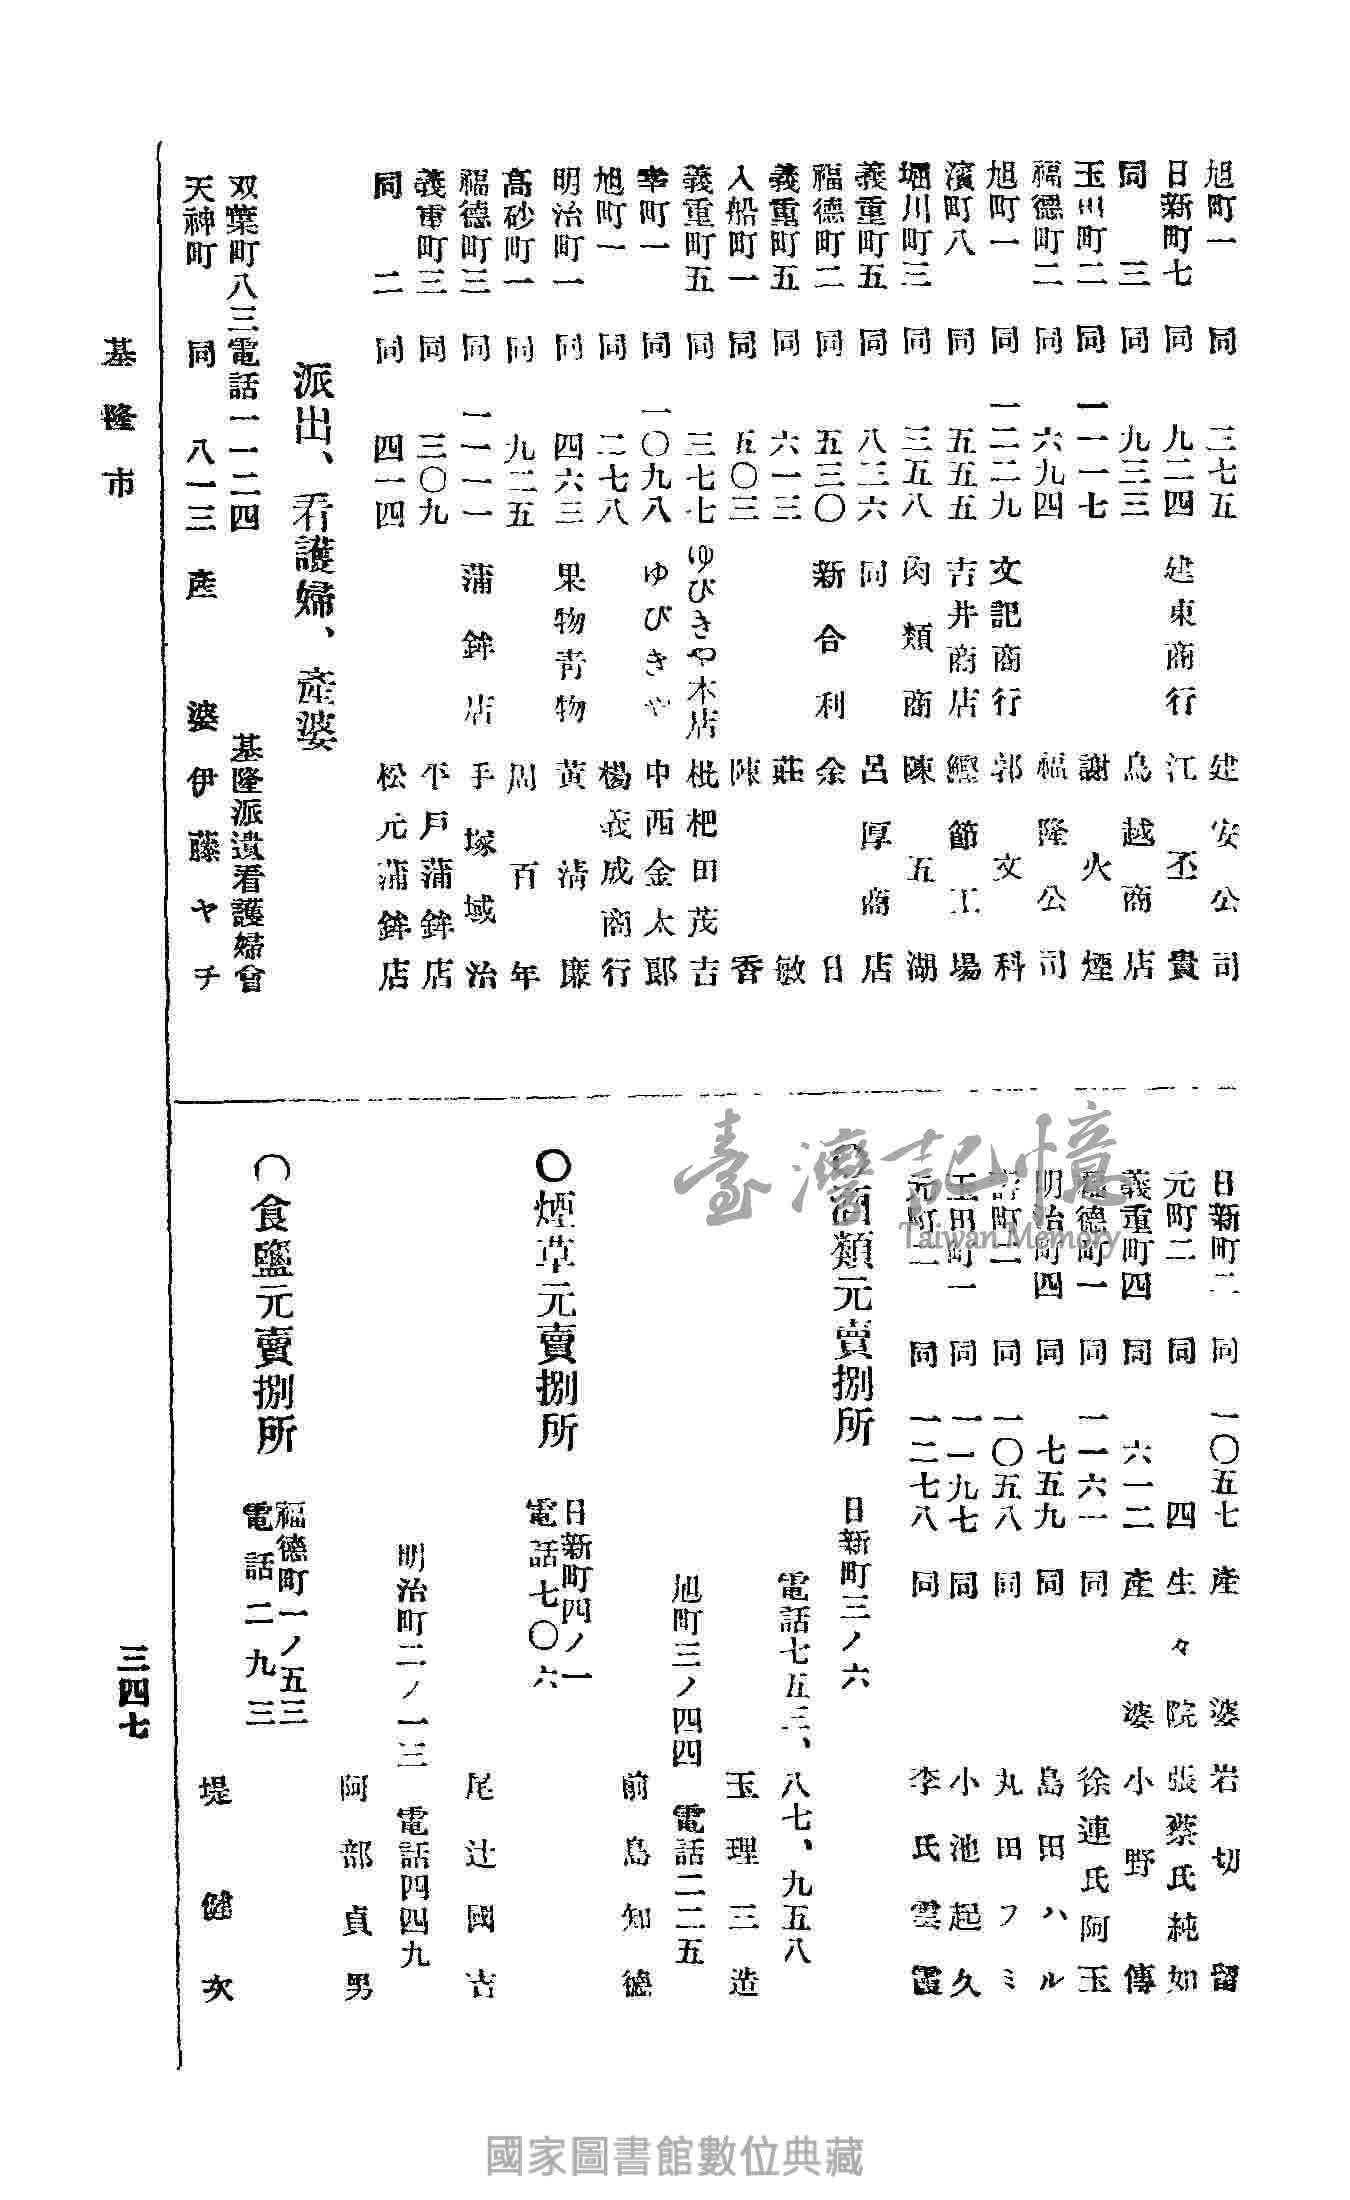 旭町一 同 三七五 建安公司
日新町七 同 九二四 建東商行 江丕貴
同 三 同 九三三 鳥越商店
玉田町二 同 一一一七 謝火煙
福德町二 同 六九四 福隆公司
旭町一 同 一二二九 文記商行 郭文科
濱町八 同 五五五 吉井商店 鰹節工場
堀川町三 同 三五八 肉類商 陳五湖
義重町五 同 八三六 同 呂厚商店
福德町二 同 五三〇 新合利 余日
義重町五 同 六一三 莊敏
入船町一 同 五〇三 陳香
義重町五 同 三七七 ゆびきや本店 枇杷田茂吉
幸町一 同 一〇九八 ゆびきや 中西金太郎
旭町一 同 二七八 楊義成商行
明治町一 同 四六三 果物靑物 黃淸廉
高砂町一 同 九二五 周百年
福德町三 同 一一一一 蒲鉾店 手塚域治
義重町三 同 三〇九 平戶蒲鉾店
同 二 同 四一四 松元蒲鉾店
派出、看護婦、產婆
双葉町八三電話一一二四 基隆派遣看護婦會
天神町 同 八一三 產婆 伊藤ヤチ
日新町二 同 一〇五七 產婆 岩切留
元町二 同 四 生々院 張蔡氏純如
義重町四 同 六一二 產婆 小野傳
福德町一 同 一一六一 同 徐連氏阿玉
明治町四 同 七五九 同 島田ハル
壽町二 同 一〇五八 同 丸田フミ
玉田町一 同 一一九七 同 小池起久
元町二 同 一二七八 同 李氏雲霞
〇酒類元賣捌所 日新町三ノ六
電話七五三、八七、九五八
玉理三造
旭町三ノ四四 電話二二五
前島知德
〇煙草元賣捌所 日新町四ノ一
電話七〇六
尾辻國吉
明治町二ノ一三 電話四四九
阿部貞男
〇食鹽元賣捌所 福德町一ノ五三
電話二九三
堤健次
基隆市
三四七
臺灣記憶
Taiwan Memory
國家圖書館數位典藏